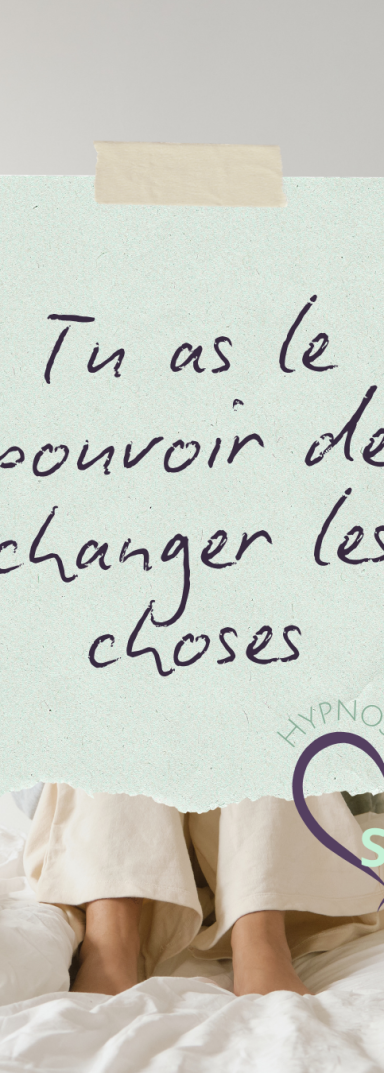 Tu as le
pouvoir de
changer les
choses
HYPNOS
S